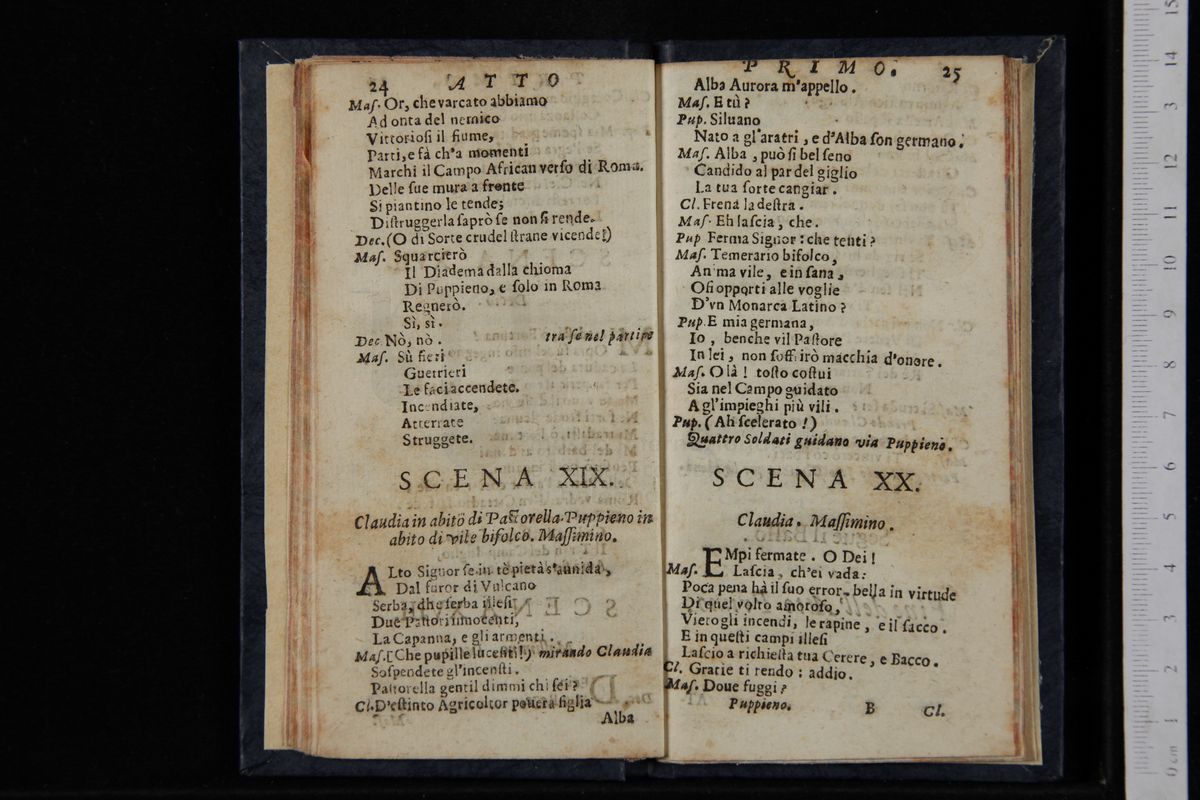 24 ATTO
Mas. Or, che varcato abbiamo
Ad onta del nemico
Vittoriosi il fiume,
Parti, e fà ch'a momenti
Marchi il Campo African verso di Roma.
Delle sue mura a fronte
Si piantino le tende;
Distruggerla saprò se non si rende.
Dec. (O di Sorte crudel strane vicende!)
Mas. Squarcierò
Il Diadema dalla chioma
Di Puppieno, e solo in Roma
Regnerò.
Sì, sì.
Dec. Nò, nò. tra se nel partire
Mas. Sù fieri
Guerrieri
Le faci accendete.
Incendiate,
Atterrate
Struggete.
SCENA XIX.
Claudia in abito di Pastorella. Puppieno in
abito di vile bifolco. Massimino.
ALto Signor se in tè pietà s'annida,
Dal furor di Vulcano
Serba, dhe serba illesi
Due Pastori innocenti,
La Capanna, e gli armenti.
Mas. [Che pupille lucenti!) mirando Claudia
Sospendete gl'incensti.
Pastorella gentil dimmi chi sei?
Cl. D'estinto Agricoltor pouera figlia
Alba
PRIMO. 25
Alba Aurora m'appello.
Mas. E tù?
Pup. Siluano
Nato a gl'aratri, e d'Alba son germano.
Mas. Alba, può si bel seno
Candido al par del giglio
La tua sorte cangiar.
Cl. Frena la destra.
Mas. Eh lascia, che.
Pup Ferma Signor: che tenti?
Mas. Temerario bifolco,
An ma vile, e in sana,
Osi opporti alle voglie
D'vn Monarca Latino?
Pup. E mia germana,
Io, benche vil Pastore
In lei, non soffrirò macchia d'onore.
Mas. O là! tosto costui
Sia nel Campo guidato
A gl'impieghi più vili.
Pup. (Ah scelerato!)
Quattro Soldati guidano via Puppieno.
SCENA XX.
Claudia. Massimino.
EMpi fermate. O Dei!
Mas. Lascia, ch'ei vada:
Poca pena hà il suo error. bella in virtude
Di quel volto amoroso,
Vierogli incendi, le rapine, e il sacco.
E in questi campi illesi
Lascio a richiesta tua Cerere, e Bacco.
Cl. Gracie ti rendo: addio.
Mas. Doue fuggi?
Puppieno. B Cl.